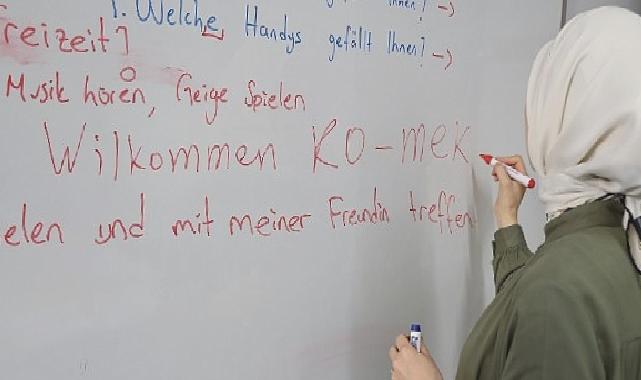 Ihnen? ->
1. Welche Handys gefällt Ihnen? ->
reizeit?
Musik hören, Geige Spielen
Wilkommen KO-mek
elen und mit meiner Freundin treffen